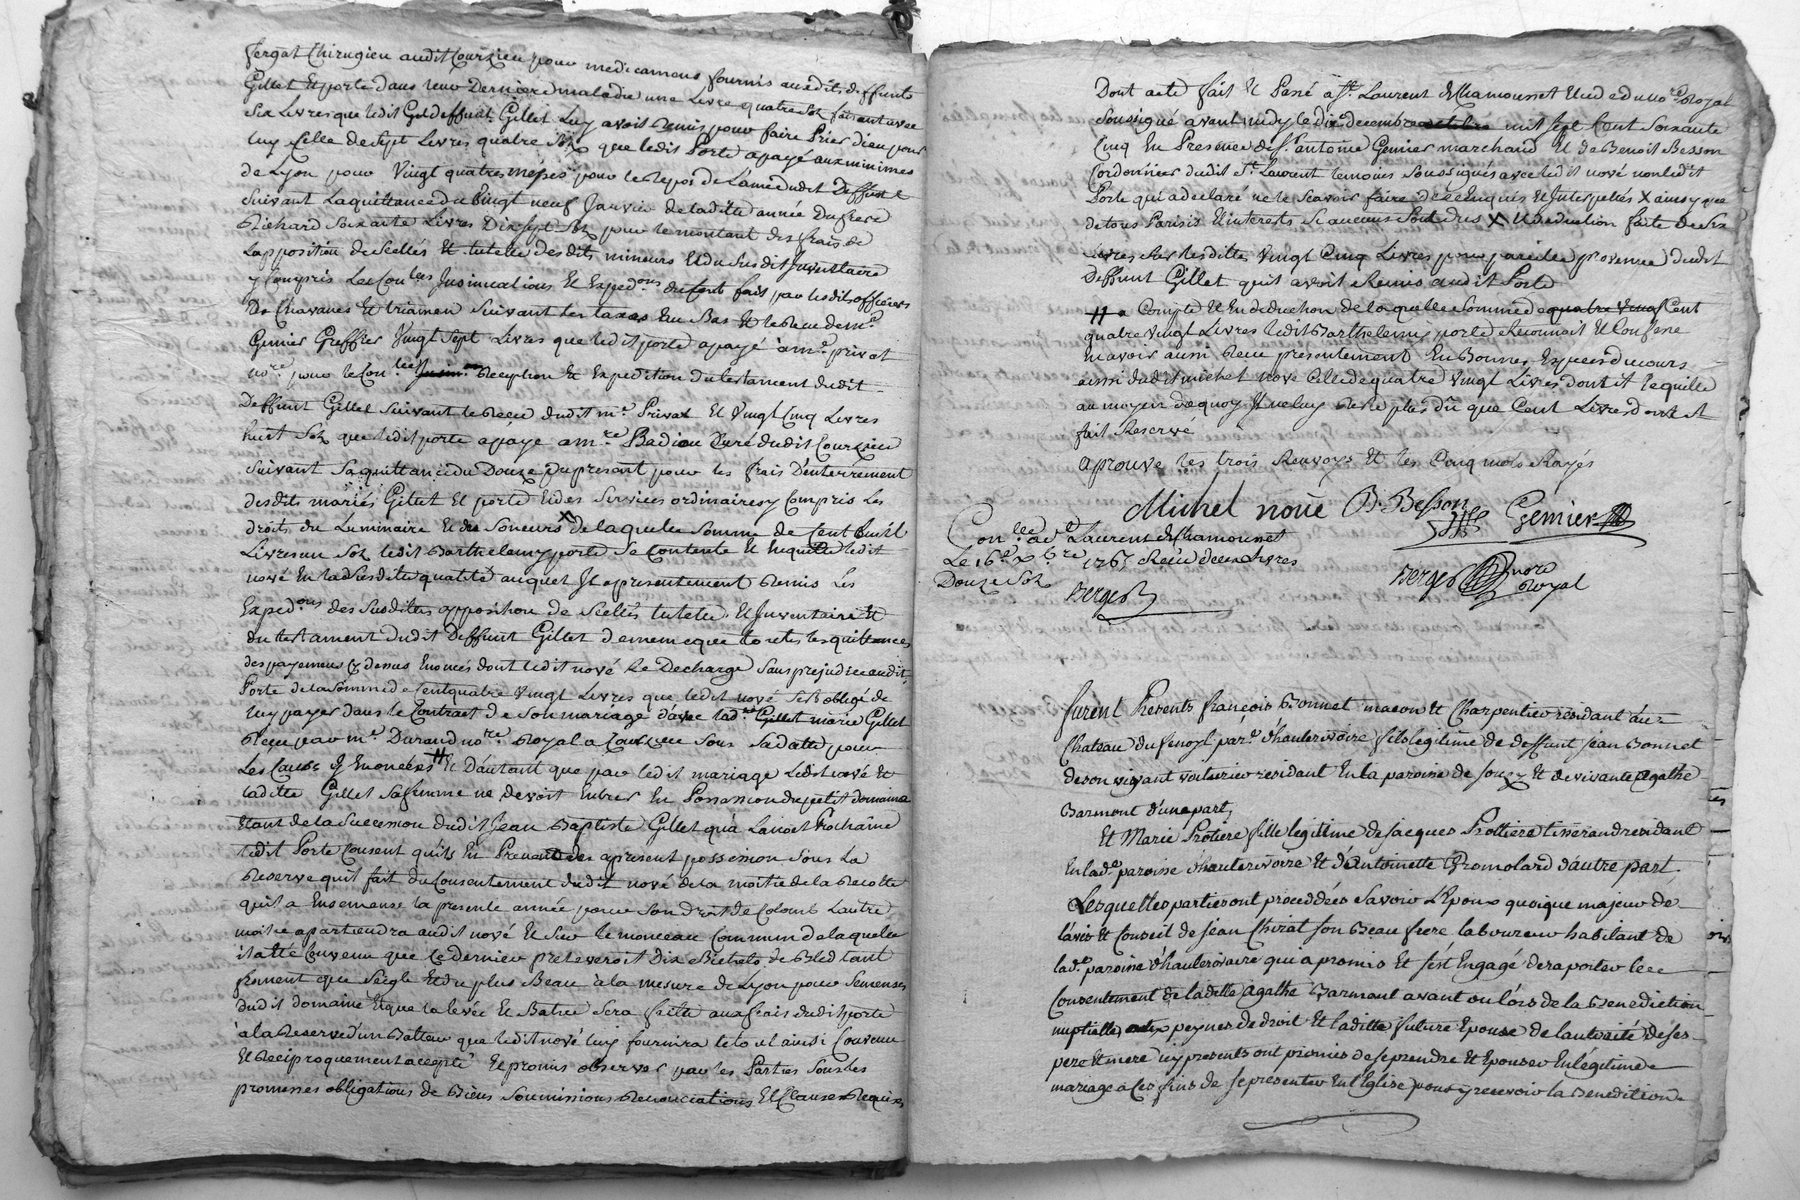 fergat Chirugien audit Courzieu pour medicamens fournis auxdits deffunts
Gillet et porte dans leur Derniere maladie une Livre quatre sol faisant avec
Six Livres que ledit deffunt Gillet luy avoit Remis pour faire Prier dieu pour
luy Celle de Sept Livres quatre Sol que ledit Porte a payé aux minimes
de Lyon pour Vingt quatres messes pour le Repos de L'ame dudit Deffunt
suivant La quittance du Vingt neuf Janvier de ladite année Du frere
Richard Soixante Livres Dix sept Sol pour le montant des frais de
L'apposition de Scellés Et tutelle desdits mineurs Et du Susdit Inventaire
y Compris Les Con.lles Insinuations Et Exped.ons du tout fait par lesdits officiers
De Chavanes Et triamen Suivant les taxes Em Bas Et le Receu de m.e
Gemier Greffier Vingt Sept Livres que ledit porte a payé a m.e privat
no.re pour le Con.lle Reception Et Expedition du testament dudit
Deffunt Gillet Suivant le Receu dudit m.e Privat Et Vingt Cinq Livres
huit Sol que ledit porte a payé a m.re Badiou Curé dudit Courzieu
Suivant Sa quittance du Douze du present pour les frais D'enterrement
desdits mariés Gillet Et porte Et des Services ordinaires y Compris Les
droits du Luminaire Et des Soneurs X de laquelle Somme de Cent huit
Livres un Sol ledit Barthelemy porte Se Contente Et En quitte ledit
nové En la Susdite qualité auquel Il a presentement Remis Les
Exped.ons des Susdites apposition de Scellés tutelle Et Inventaire Et
du testament dudit Deffunt Gillet de meme que toutes les quittances
des payemens cy dessus Enoncés dont ledit nové Le Decharge Sans prejudice audit
Porte de la Somme de Cent quatre Vingt Livres que ledit nové s'est obligé de
luy payer dans le Contract de Son mariage d'avec lad.te Gillet marie Gillet
Receu par m.e Durand no.re Royal a Courzieu Sous Sa datte pour
Les Causes y Enoncées # Et D'autant que par ledit mariage Ledit nové Et
ladite Gillet Sa femme ne devoit Entrer En Possession du petit domaine
Etant de la Succession dudit Jean Baptiste Gillet qu'à La noel Prochaine
ledit Porte Consent qu'ils En Prenent des apresent possession Sous La
Reserve qu'il fait du Consentement dudit nové de la moitié de la Recolte
qu'il a Ensemensé la presente année pour Son droit de Colomb Lautre
moitié apartiendra audit nové Et Sur le monceau Commun de laquelle
il a Eté Convenu que Ce Dernier preleveroit Dix Bichets de Bled tant
froment que Seigle Et du plus Beau à la mesure de Lyon pour Semences
dudit domaine Et que la levée Et Batue Sera faitte aux frais dudit porte
à la Reserve d'un Batteur que ledit nové luy fournira le tout ainsi Convenu
Et Reciproquement accepté Et promis observer par les Parties Sous les
promesses obligations de Biens Soumissions Renonciations Et Clauses Requises
Dont acte fait Et Passé à S.t Laurent de Chamousset Etude du no.re Royal
Soussigné avant midy le dix decembre mil Sept Cent Soixante
Cinq En Presence de S.r antoine Gemier marchand Et de Benoit Besson
Cordonnier dudit S.t Laurent temoins Soussignés avec ledit nové non ledit
Porte qui a declaré ne le Scavoir faire de ce Enquis Et Interpellés X ainsy que
de tous Parisis Et interests Si aucuns Sont dus X Et deduction faite de Six
Livres Sur lesdittes Vingt Cinq Livres pour pareille provenue dudit
Deffunt Gillet qu'il avoit Remis audit Porte
# a Compte Et En deduction de laquelle Somme de Cent
quatre Vingt Livres ledit Barthelemy porte Reconnoit Et Confesse
avoir aussi Receu presentement En Bonnes Especes du cours
aussi dudit michel nové Celle de quatre Vingt Livres dont il Le quitte
au moyen de quoy Il ne luy Reste plus dû que Cent Livres dont Il
fait Reserve
aprouve les trois Renvoys Et les Cinq mots Rayés
Michel noué B. Besson Gemier
Con.lé a S.t Laurent de Chamousset
Le 16.e Xbre 1765 Receu deux Livres
Douze Sol
Berger
Berger no.re Royal
Furent Presents françois Bonnet maçon Et Charpentier residant au
Chateau du fenoyl par.se d'hauterivoire fils legitime de deffunt jean Bonnet
de son vivant voiturier residant En la paroisse de Souzy Et de vivante agathe
Barmont d'une part,
Et Marie Protiere fille legitime de jacques Protiere tisserand residant
En lad.e paroisse d'hauterivoire Et d'Antoinette Gromolard d'autre part
Lesquelles parties ont procedées Savoir L'Epoux quoique majeur de
l'avis Et Conseil de jean Chirat son Beau frere laboureur habitant de
lad.e paroisse d'hauterivoire qui a promis Et s'est Engagé de raporter le
Consentement de ladite agathe Barmont avant ou lors de la Benediction
nuptialle aux peynes de droit Et laditte future Epouse de lautorité de ses
pere Et mere icy presents ont promis de se prendre Et Epouser En légitime
mariage à Ces fins de se presenter En l'Eglise pour y recevoir la Benedition